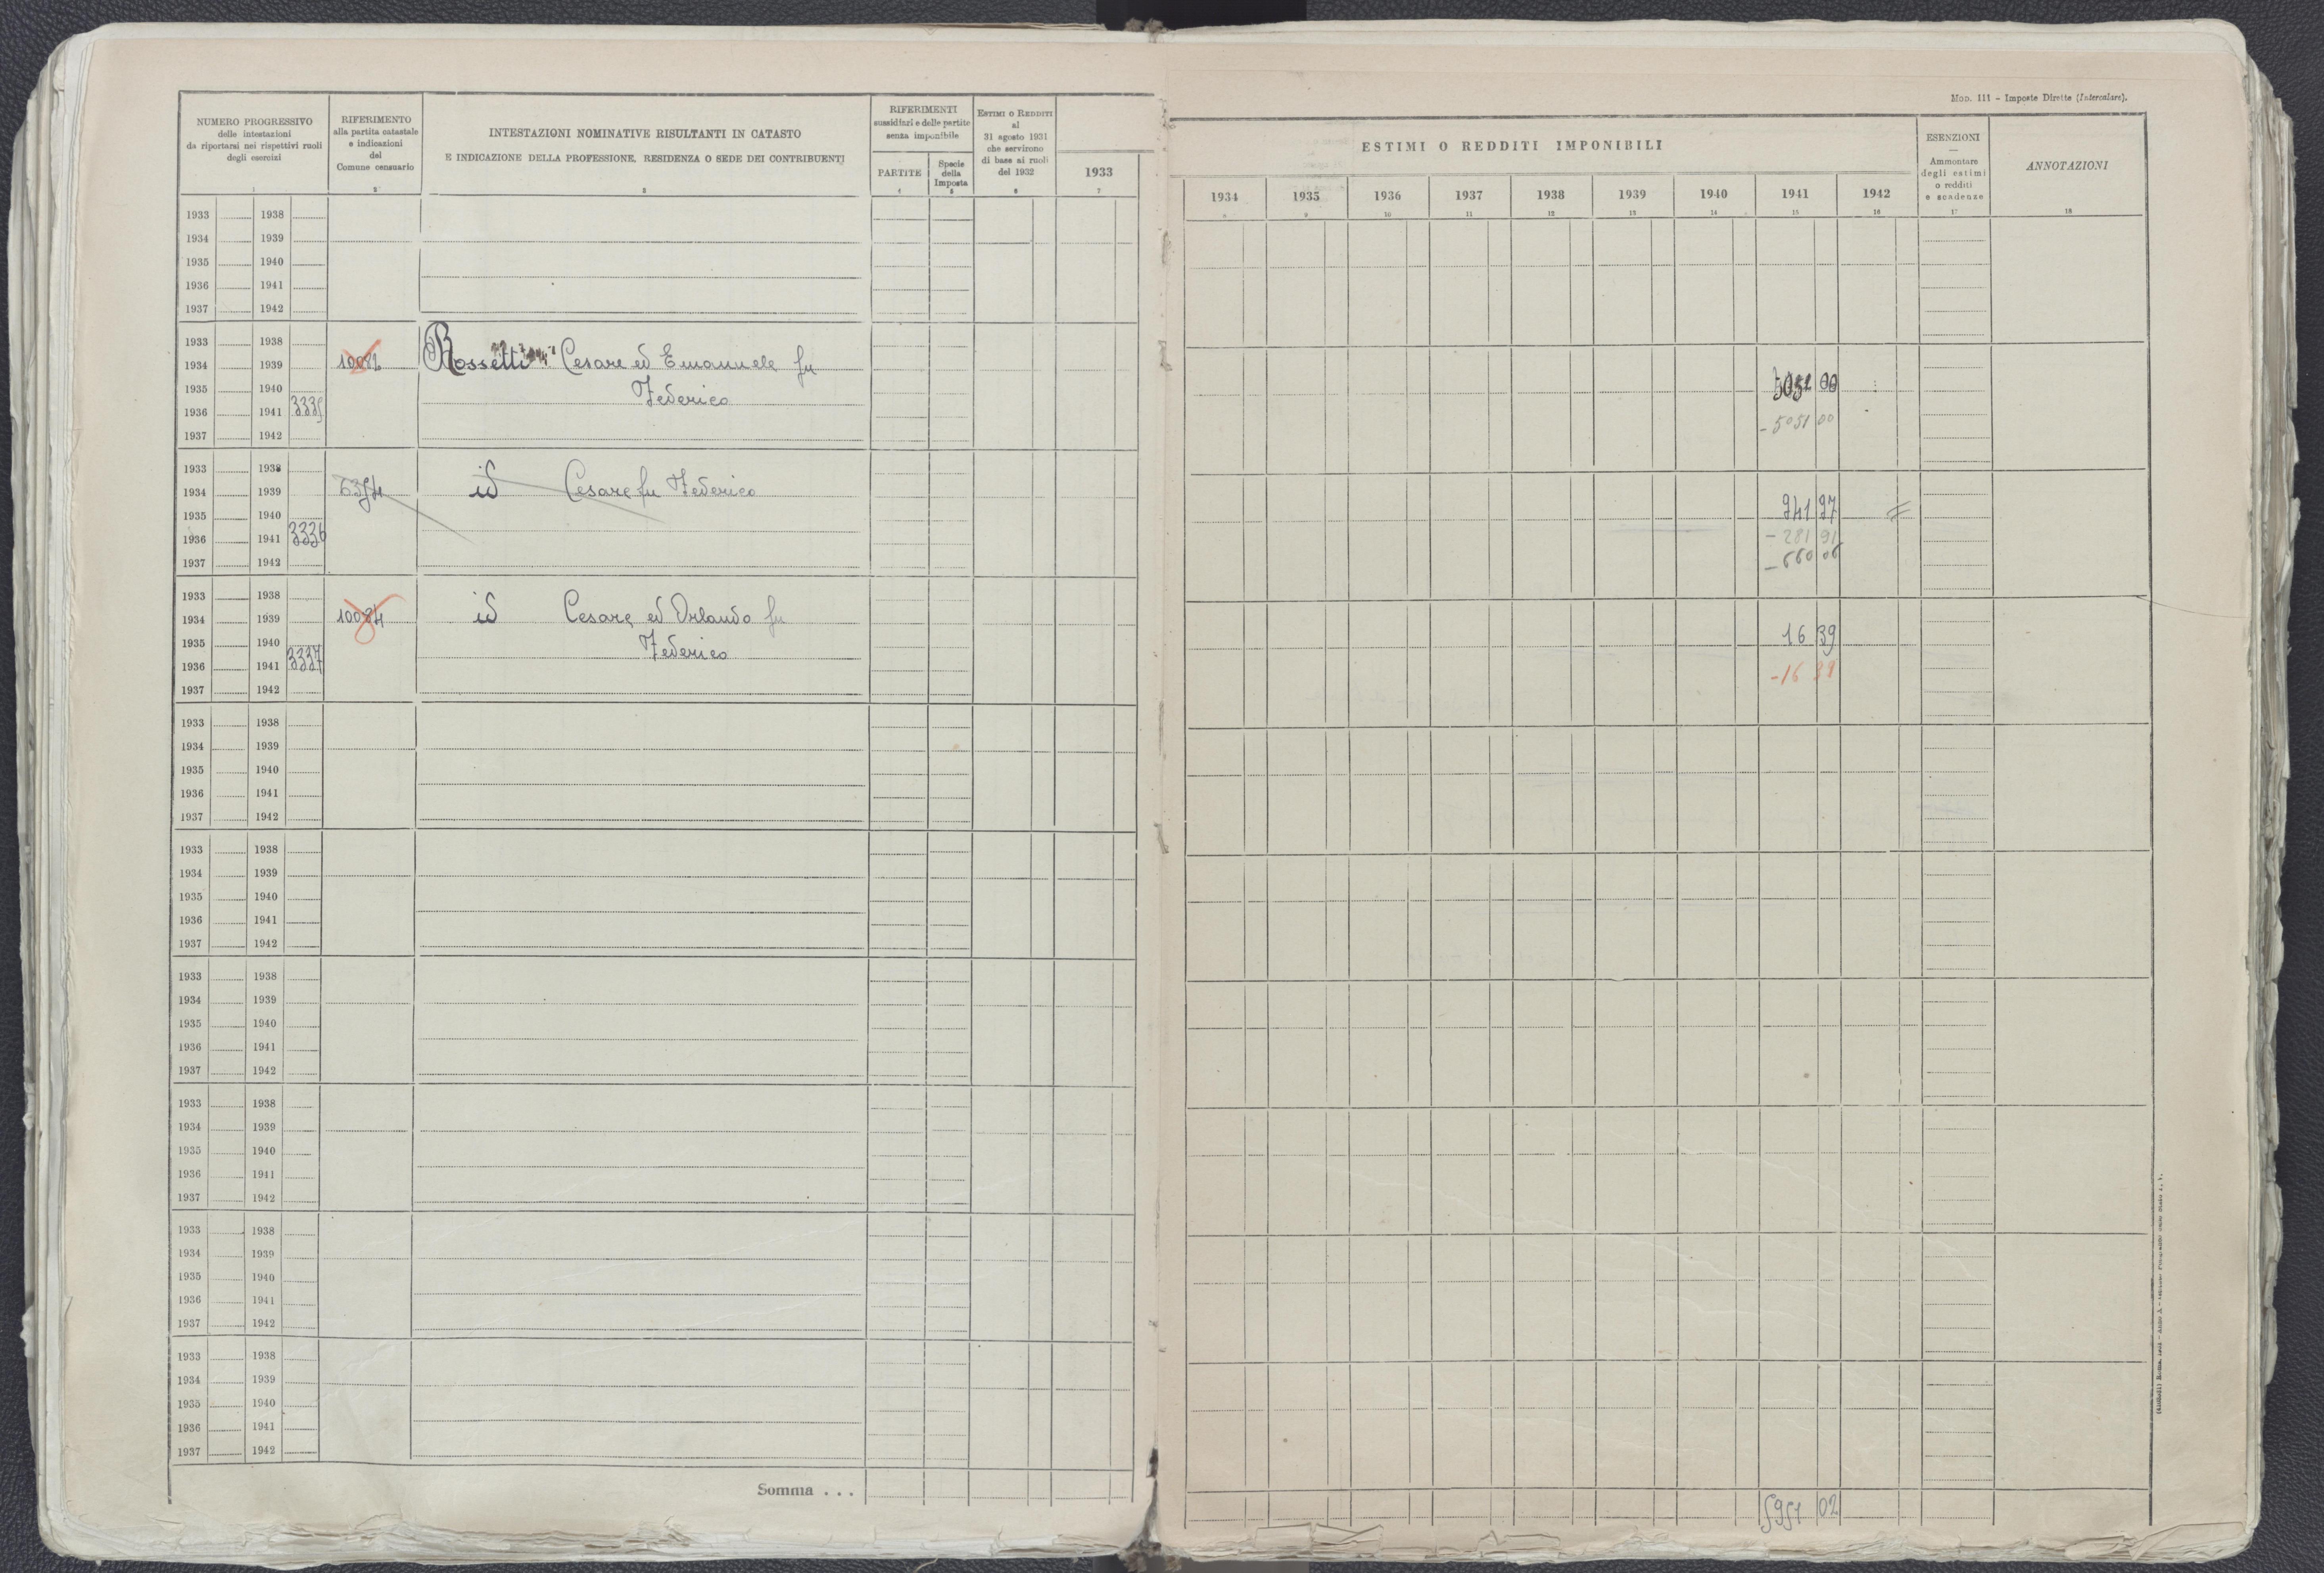 MOD. 111 - Imposte Dirette (Intercalare).
NUMERO PROGRESSIVO
delle intestazioni
da riportarsi nei rispettivi ruoli
degli esercizi
1
RIFERIMENTO
alla partita catastale
e indicazioni
del
Comune censuario
2
INTESTAZIONI NOMINATIVE RISULTANTI IN CATASTO
E INDICAZIONE DELLA PROFESSIONE, RESIDENZA O SEDE DEI CONTRIBUENTI
3
RIFERIMENTI
sussidiari e delle partite
senza imponibile
PARTITE
4
Specie
della
Imposta
5
ESTIMI O REDDITI
al
31 agosto 1931
che servirono
di base ai ruoli
del 1932
6
1933
7
ESTIMI O REDDITI IMPONIBILI
1934 1935 1936 1937 1938 1939 1940 1941 1942
8 9 10 11 12 13 14 15 16
ESENZIONI
—
Ammontare
degli estimi
o redditi
e scadenze
17
ANNOTAZIONI
18
1933 1938
1934 1939
1935 1940
1936 1941
1937 1942
1933 1938
1934 1939 10082 Rossetti Cesare ed Emanuele fu
1935 1940 Federico 5051 00
1936 1941 3335
1937 1942 - 5051 00
1933 1938
1934 1939 id Cesare fu Federico
1935 1940 941 97
1936 1941 3336 - 281 91
1937 1942 - 660 06
1933 1938
1934 1939 10084 id Cesare ed Orlando fu
1935 1940 Federico 16 39
1936 1941 3337 - 16 39
1937 1942
1933 1938
1934 1939
1935 1940
1936 1941
1937 1942
1933 1938
1934 1939
1935 1940
1936 1941
1937 1942
1933 1938
1934 1939
1935 1940
1936 1941
1937 1942
1933 1938
1934 1939
1935 1940
1936 1941
1937 1942
1933 1938
1934 1939
1935 1940
1936 1941
1937 1942
1933 1938
1934 1939
1935 1940
1936 1941
1937 1942
Somma . . .
5951 02